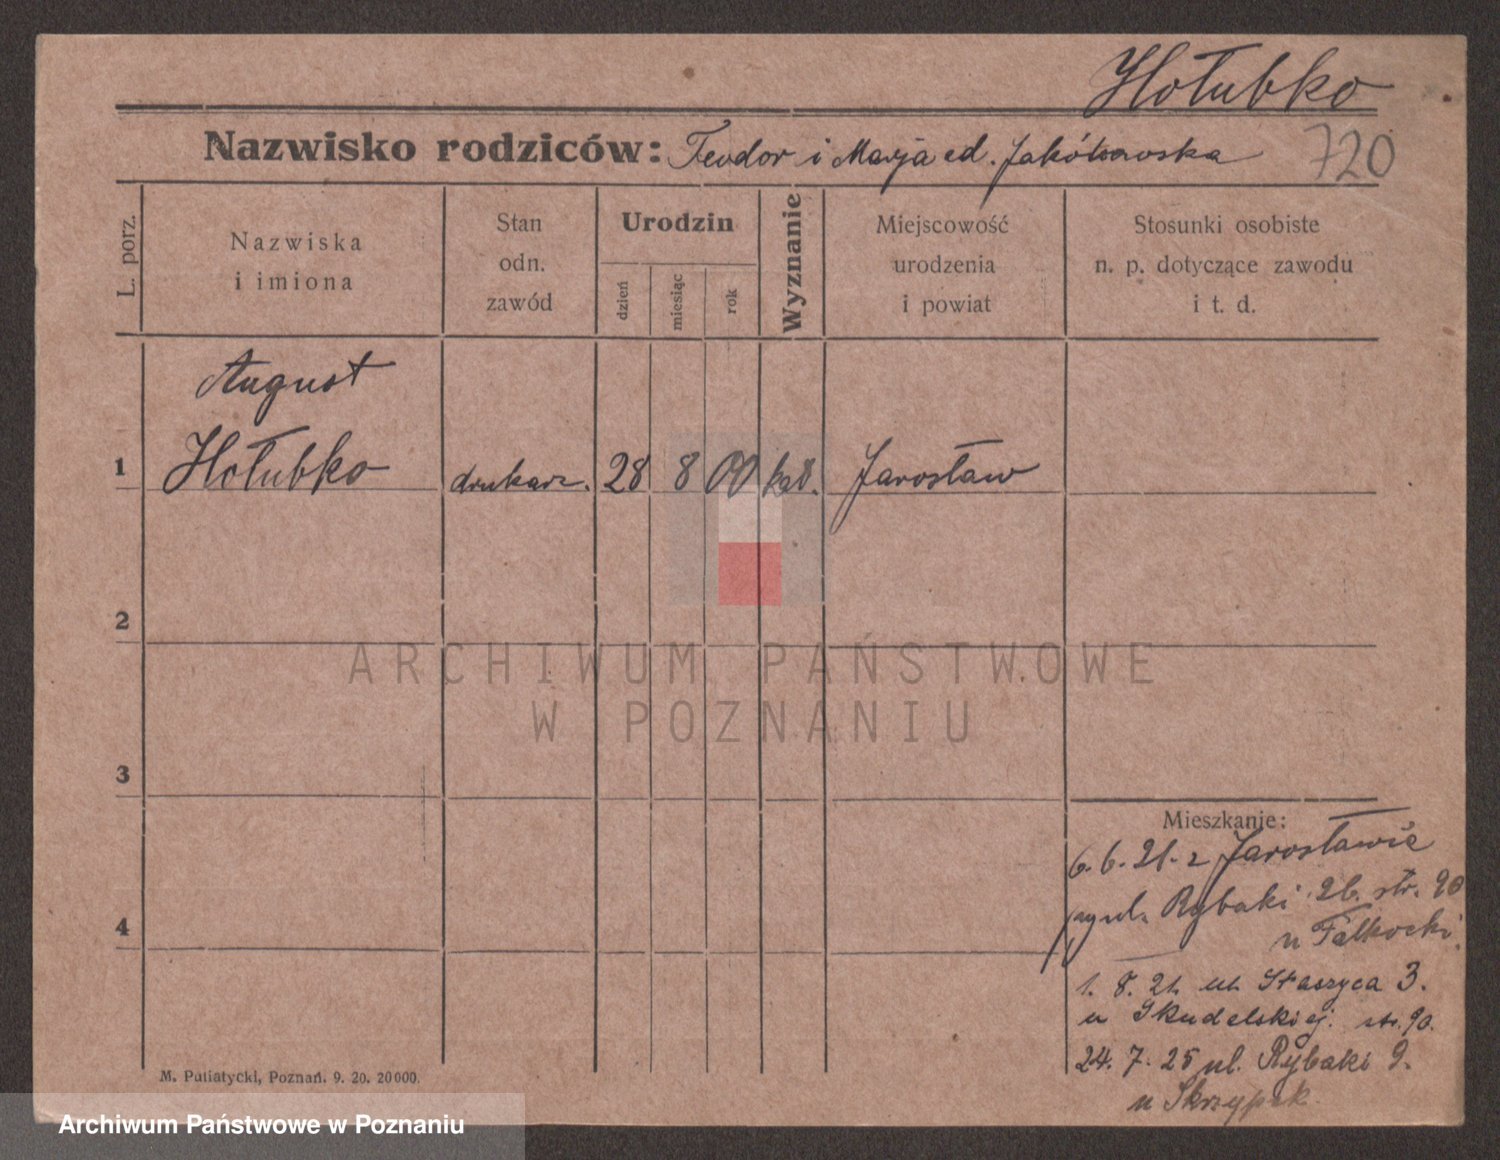 Hołubko
720
Nazwisko rodziców: Teodor i Marja ed. Jakóbowska
L. porz.
Nazwiska
i imiona
Stan
odn.
zawód
Urodzin
dzień
miesiąc
rok
Wyznanie
Miejscowość
urodzenia
i powiat
Stosunki osobiste
n. p. dotyczące zawodu
i t. d.
August
1 Hołubko drukarz. 28 8 00 kat. Jarosław
2
ARCHIWUM PAŃSTWOWE
W POZNANIU
3
Mieszkanie:
6.6.21. z Jarosławie
Rybaki 26. str. 90
u Fałkocki
4
1. 8. 21. ul. Staszyca 3.
u Skudelskiej. str. 90.
24. 7. 25 ul. Rybaki 9.
u Skrzypek
M. Putiatycki, Poznań. 9. 20. 20000.
Archiwum Państwowe w Poznaniu